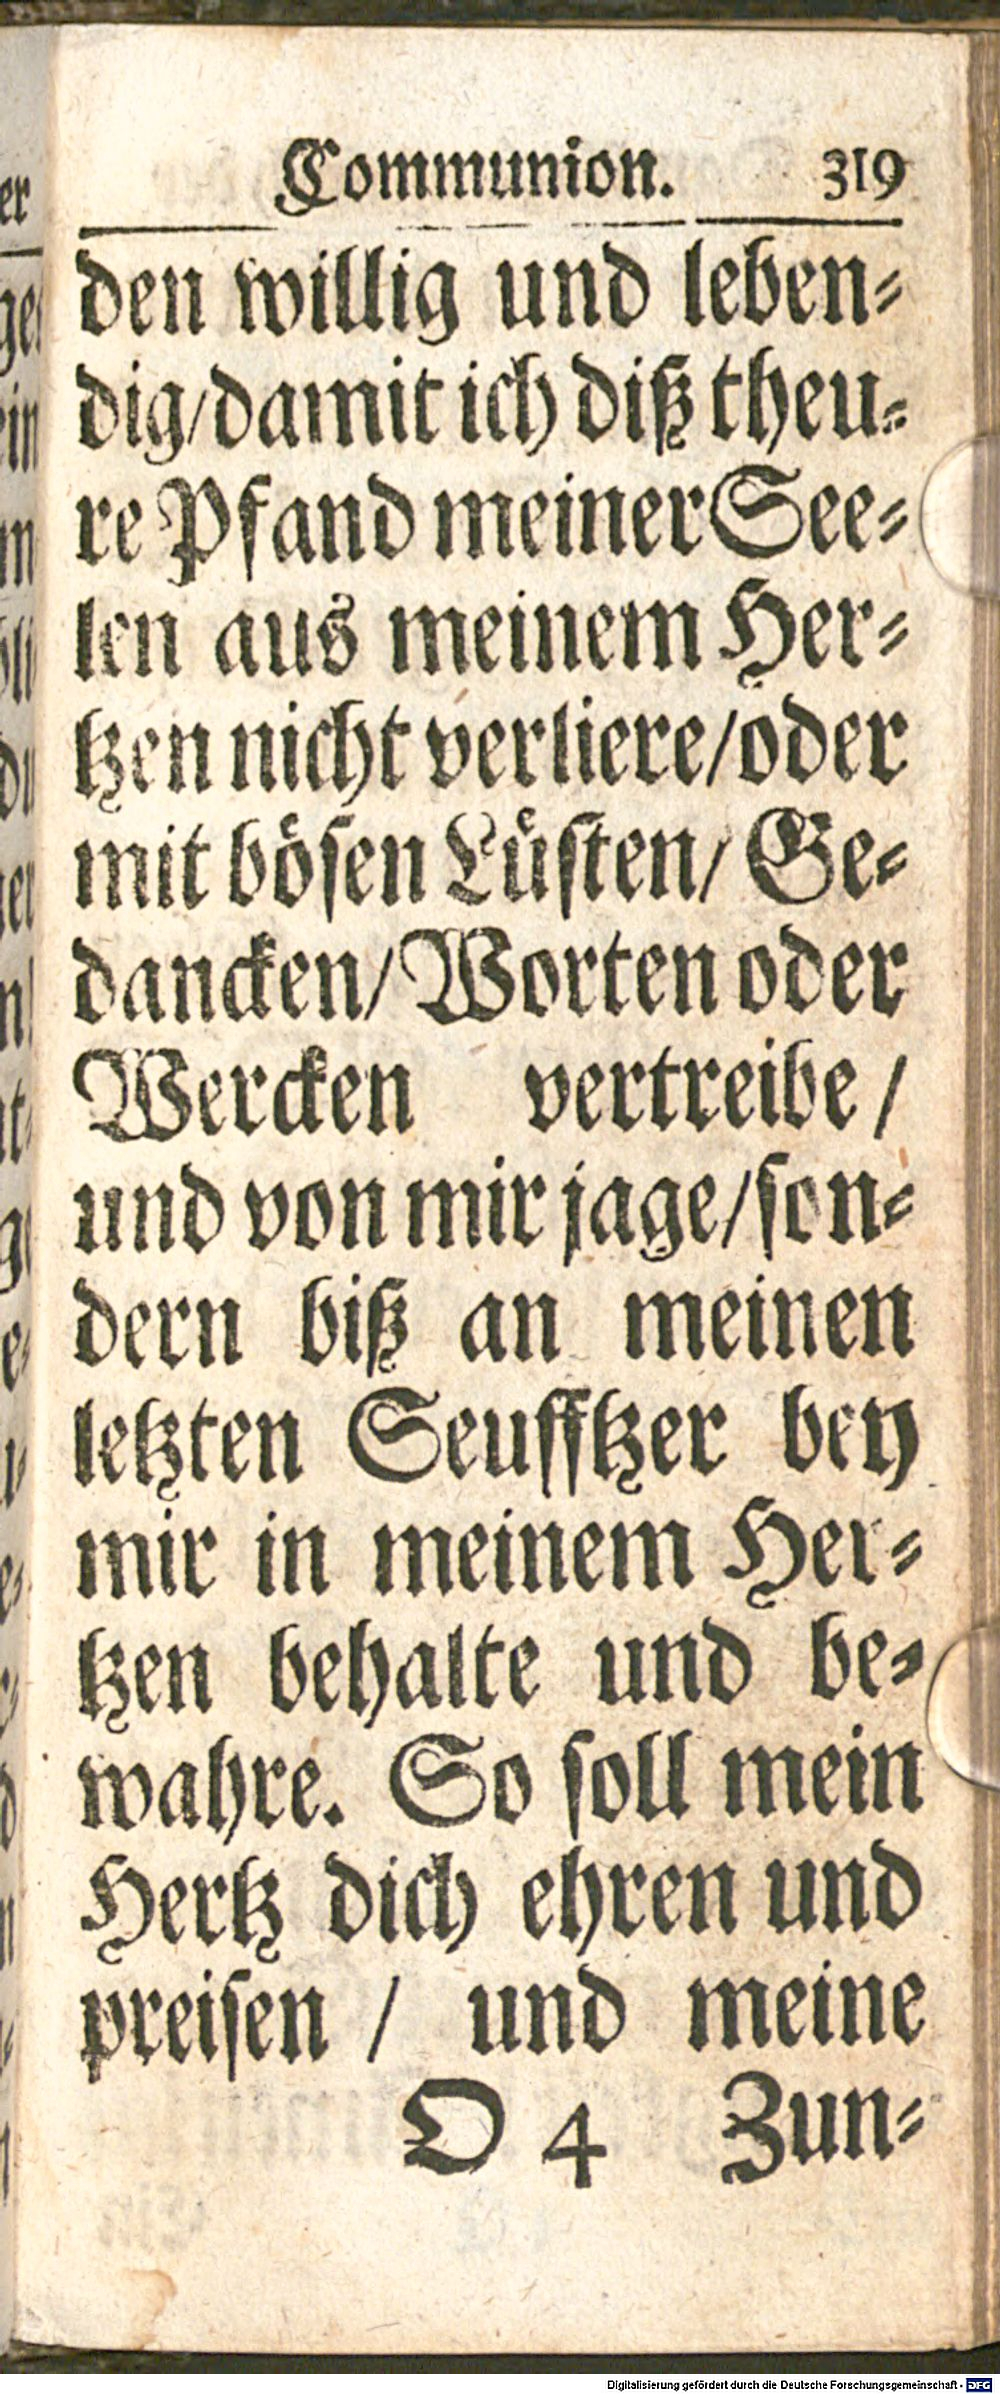 Communion. 319
den willig und leben-
dig/damit ich diß theu-
re Pfand meiner See-
len aus meinem Her-
tzen nicht verliere/oder
mit bösen Lüsten/ Ge-
dancken/ Worten oder
Wercken vertreibe /
und von mir jage/son-
dern biß an meinen
letzten Seufftzer bey
mir in meinem Her-
tzen behalte und be-
wahre. So soll mein
Hertz dich ehren und
preisen / und meine
O 4 Zun-
Digitalisierung gefördert durch die Deutsche Forschungsgemeinschaft - DFG